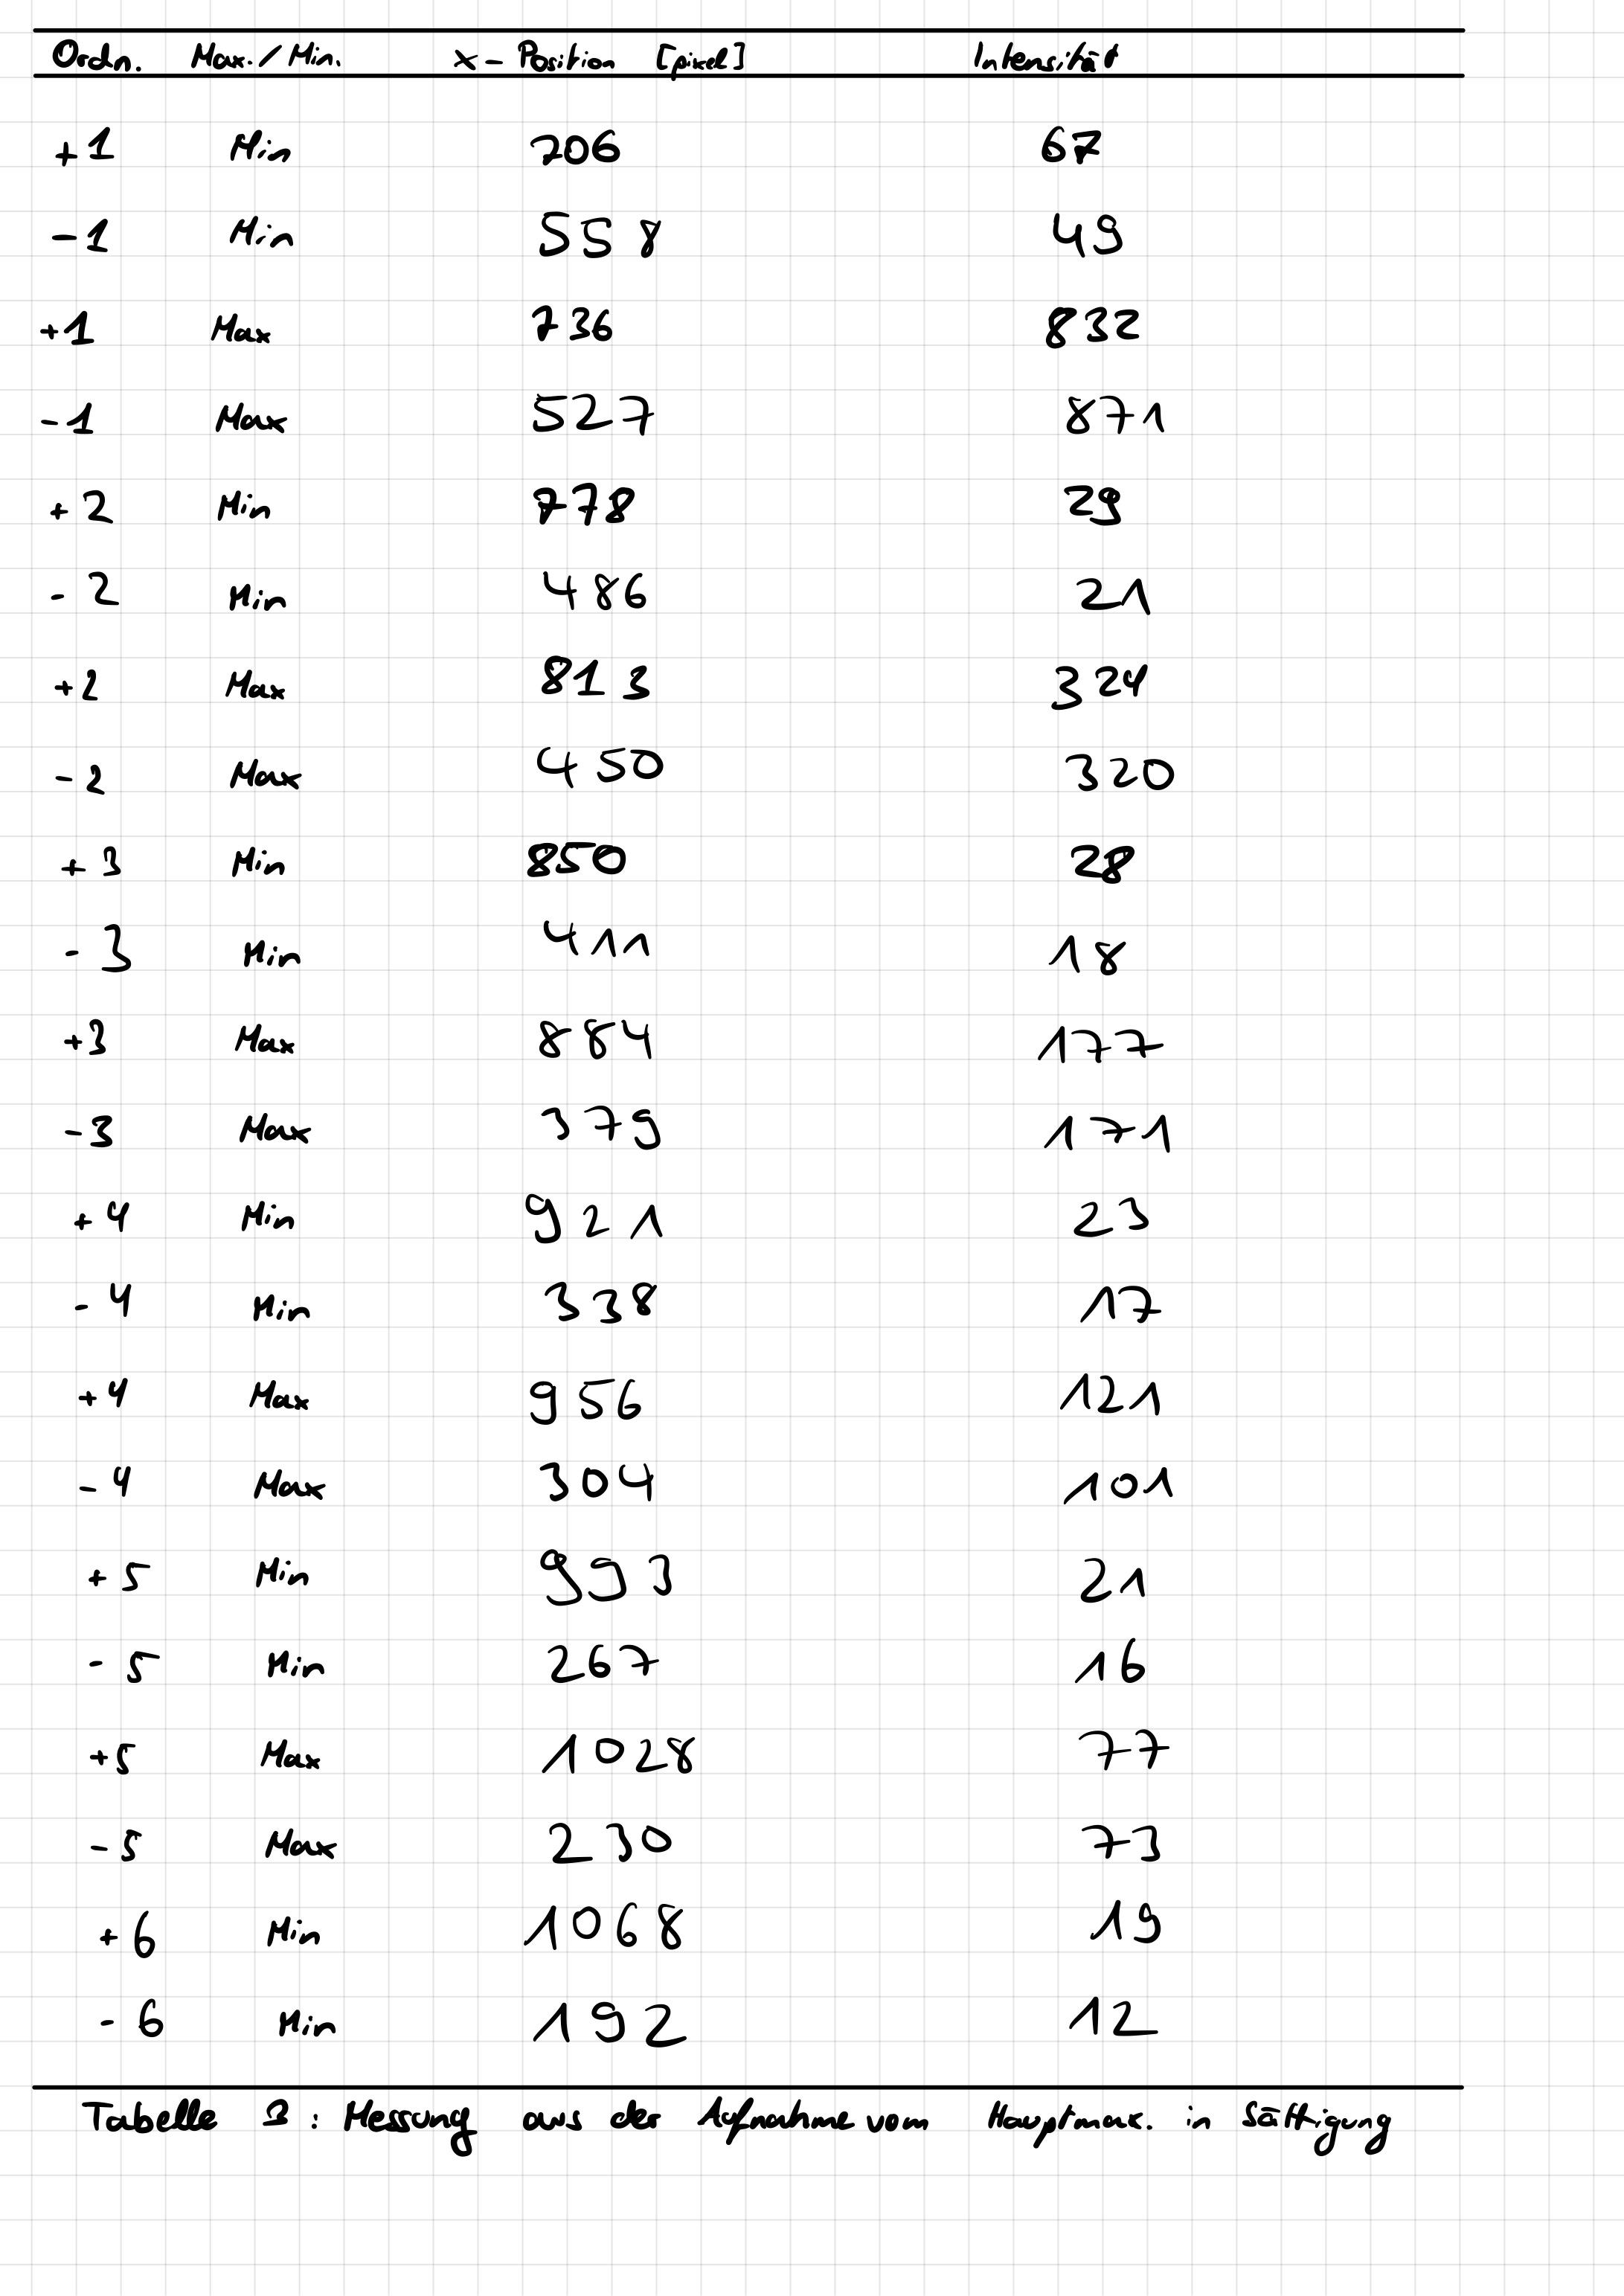 Ordn. Max./Min. x-Position [pixel] Intensität
+1 Min 706 67
-1 Min 558 49
+1 Max 736 832
-1 Max 527 871
+2 Min 778 29
-2 Min 486 21
+2 Max 813 324
-2 Max 450 320
+3 Min 850 28
-3 Min 411 18
+3 Max 884 177
-3 Max 379 171
+4 Min 921 23
-4 Min 338 17
+4 Max 956 121
-4 Max 304 101
+5 Min 993 21
-5 Min 267 16
+5 Max 1028 77
-5 Max 230 73
+6 Min 1068 19
-6 Min 192 12
Tabelle : Messung aus der Aufnahme vom Hauptmax. in Sättigung